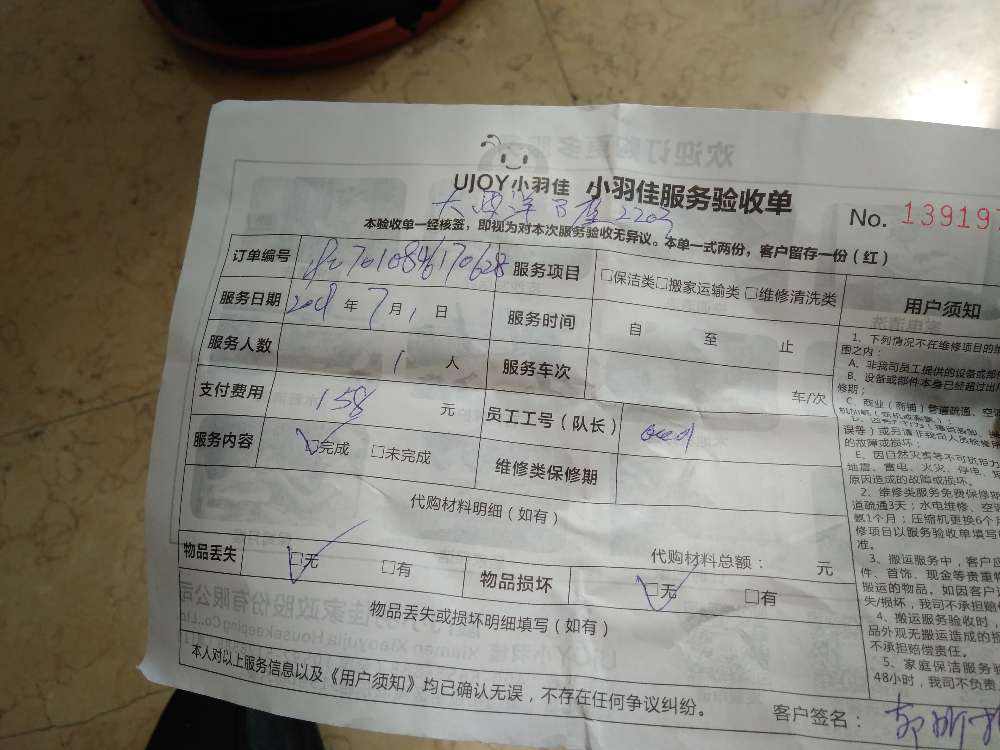 UJOY小羽佳 小羽佳服务验收单
大西洋B座2203
No. 13919
本验收单一经核签，即视为对本次服务验收无异议。本单一式两份，客户留存一份（红）
订单编号
服务项目 □保洁类□搬家运输类 □维修清洗类
服务日期 年 7月1日 服务时间 自 至 止
服务人数 1 人 服务车次 车/次
支付费用 158 元 员工工号（队长）
服务内容 □完成 □未完成 维修类保修期
代购材料明细（如有）
代购材料总额： 元
物品丢失 □无 □有 物品损坏 □无 □有
物品丢失或损坏明细填写（如有）
本人对以上服务信息以及《用户须知》均已确认无误，不存在任何争议纠纷。
客户签名：
用户须知
1、下列情况不在维修项目的
围之内：
A、非我司员工提供的设备或
B、设备或部件本身已经超过出
修期；
C、商业（商铺）管道疏通、空
误等）或另请非我司人员检修
的故障或损坏；
E、因自然灾害等不可抗拒力
地震、雷电、火灾、停电、
原因造成的故障或损坏。
2、维修类服务免费保修期
道疏通3天；水电维修、空
氨1个月；压缩机更换6个
修项目以服务验收单填写
准。
3、搬运服务中，客户应
件、首饰、现金等贵重
搬运的物品，如因客户
失/损坏，我司不承担赔
4、搬运服务验收时，
品外观无搬运造成的
不承担赔偿责任。
5、家庭保洁服务
48小时，我司不负责